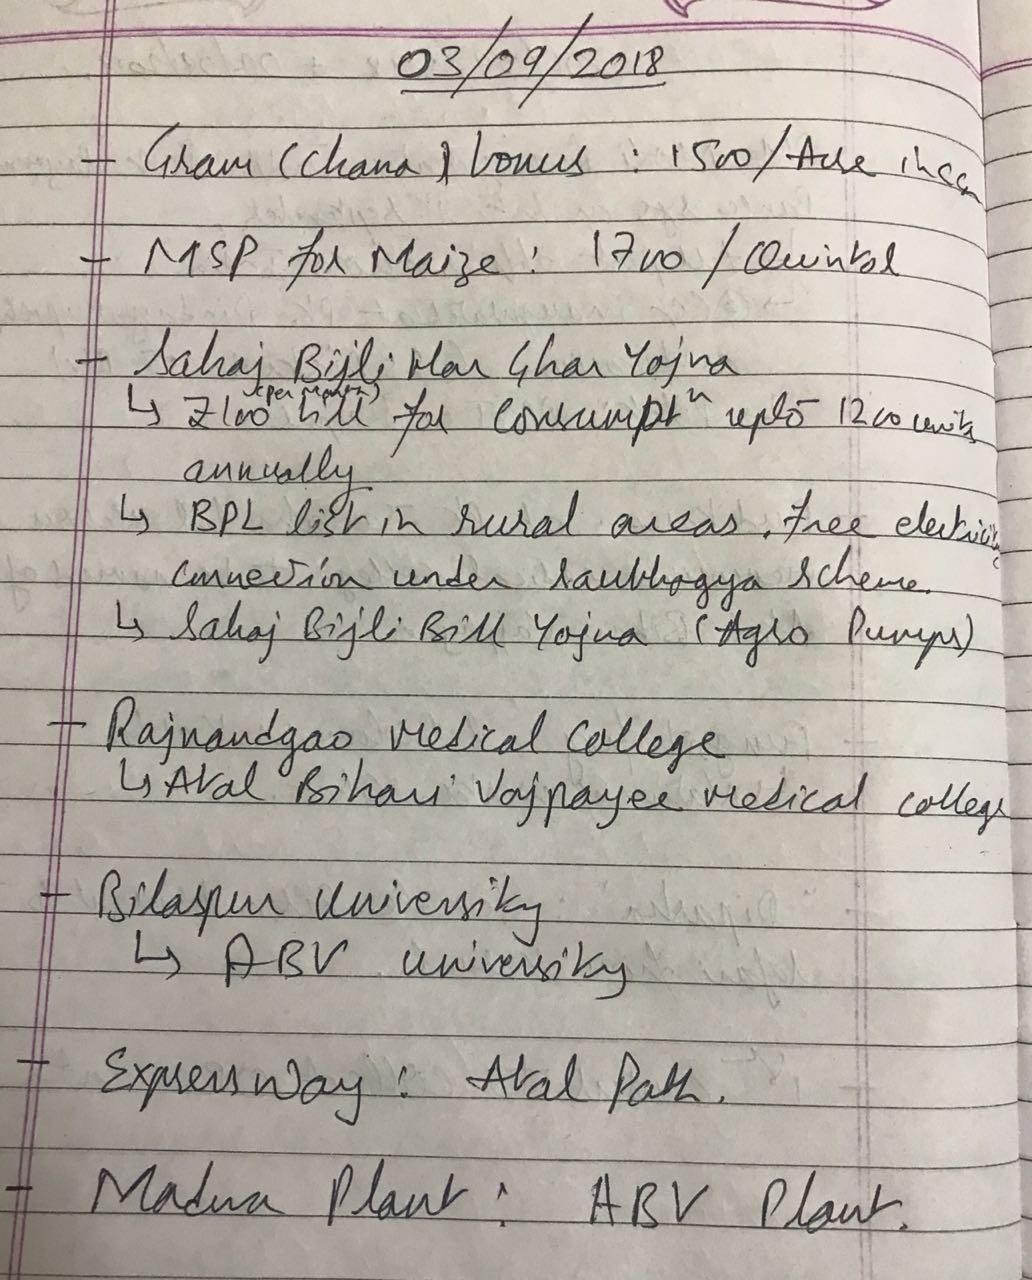 03/09/2018
- Gram (Chana) bonus : 1500/Acre in CG
- MSP for Maize : 1700 / Quintal
- Sahaj Bijli Har Ghar Yojna
(per month)
↳ ₹100 bill for consumptⁿ upto 1200 units
annually
↳ BPL list in rural areas. free electricity
connection under Saubhagya Scheme.
↳ Sahaj Bijli Bill Yojna (Agro Pumps)
- Rajnandgao Medical College
↳ Atal Bihari Vajpayee Medical College
- Bilaspur University
↳ ABV University
- Express Way : Atal Path.
- Madwa Plant : ABV Plant.